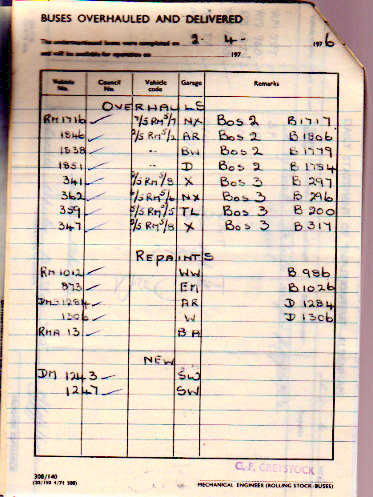 BUSES OVERHAULED AND DELIVERED
The undermentioned buses were completed on 2-4- 1976
and will be available for operation on 197
Vehicle No. Council No. Vehicle code Garage Remarks
OVERHAULS
RM1716 ✓ 7/5RM5/7 NX BoS 2 B1717
1846 ✓ 2/5RM5/2 AR BoS 2 B1806
1838 ✓ " BW BoS 2 B1779
1851 ✓ " D BoS 2 B1754
341 ✓ 2/5RM5/8 X BoS 3 B297
362 ✓ 5RM5/6 NX BoS 3 B296
359 ✓ 5RM/5 TL BoS 3 B200
347 ✓ 2/5RM5/8 X BoS 3 B317
REPAINTS
RM1012 ✓ WW B986
873 ✓ EM B1026
DMS1284 ✓ AR D1284
1306 ✓ W D1306
RMA 13 ✓ BA
NEW
DM 1243 ✓ SW
1247 ✓ SW
G. F. GREYSTOCK
308/140
MECHANICAL ENGINEER (ROLLING STOCK-BUSES)